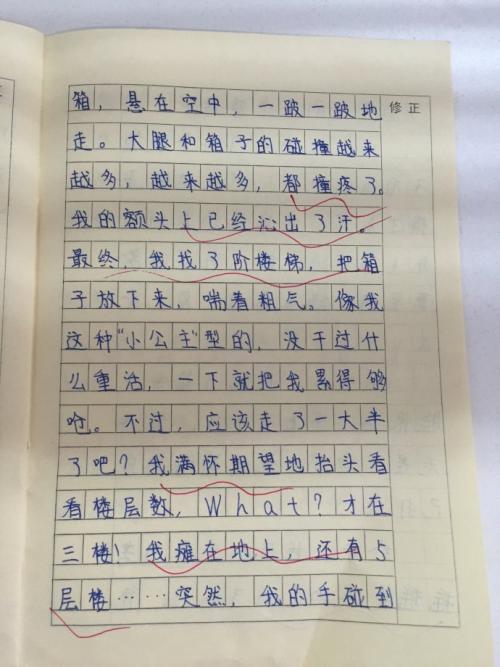 修正
箱，悬在空中，一跛一跛地
走。大腿和箱子的碰撞越来
越多，越来越多，都撞疼了。
我的额头上已经沁出了汗。
最终，我找了阶楼梯，把箱
子放下来，喘着粗气。像我
这种“小公主”型的，没干过什
么重活，一下就把我累得够
呛。不过，应该走了一大半
了吧？我满怀期望地抬头看
看楼层数，What？才在
三楼！我瘫在地上，还有5
层楼……突然，我的手碰到